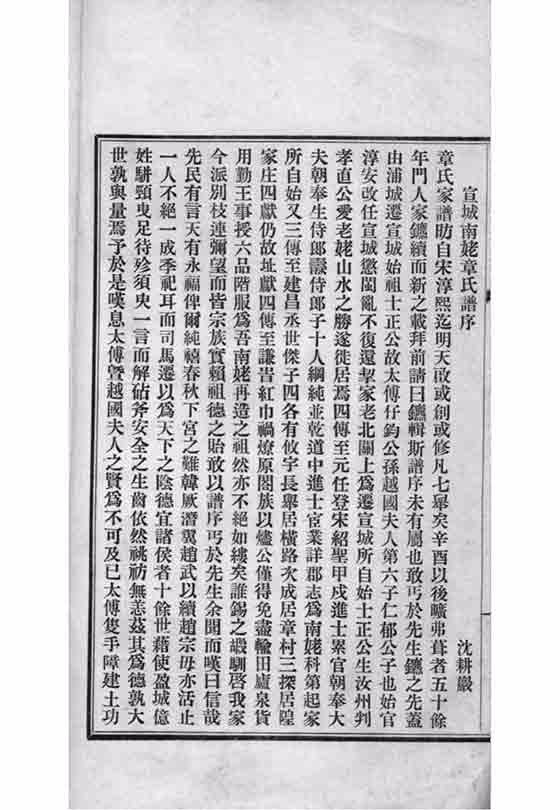 宣城南姥章氏譜序
沈耕巖
章氏家譜昉自宋淳熙迄明天啟或創或修凡七舉矣辛酉以後曠弗葺者五十餘
年門人家鑣續而新之載拜前請曰鑣輯斯譜序未有屬也敢丐於先生鑣之先蓋
由浦城遷宣城始祖士正公故太傅仔鈞公孫越國夫人第六子仁郁公子也始官
淳安改任宣城懲閩亂不復還挈家老北關上為遷宣城所自始士正公生汝州判
孝直公愛老姥山水之勝遂徙居焉四傳至元任登宋紹聖甲戌進士累官朝奉大
夫朝奉生侍郎燾侍郎子十人綱純並乾道中進士宦業詳郡志為南姥科第起家
所自始又三傳至建昌丞世傑子四各有攸字長舉居橫路次成居章村三探居隍
家庄四獻仍故址獻四傳至謙旹紅巾禍燎原閤族以燼公僅得免盡輸田廬泉貨
用勤王事授六品階服為吾南姥再造之祖然亦不絕如縷矣誰錫之嘏馴啓我家
今派別枝連彌望而皆宗族實賴祖德之貽敢以譜序丐於先生余聞而嘆曰信哉
先民有言天有永福俾爾純禧春秋下宮之難韓厥潛翼趙武以續趙宗毋亦活止
一人不絕一成季祀耳而司馬遷以為天下之陰德宜諸侯者十餘世藉使盈城億
姓駢頸曳足待殄須臾一言而解砧斧安全之生齒依然祧祊無恙茲其為德孰大
世孰與量焉予於是嘆息太傅曁越國夫人之賢為不可及已太傅隻手障建土功